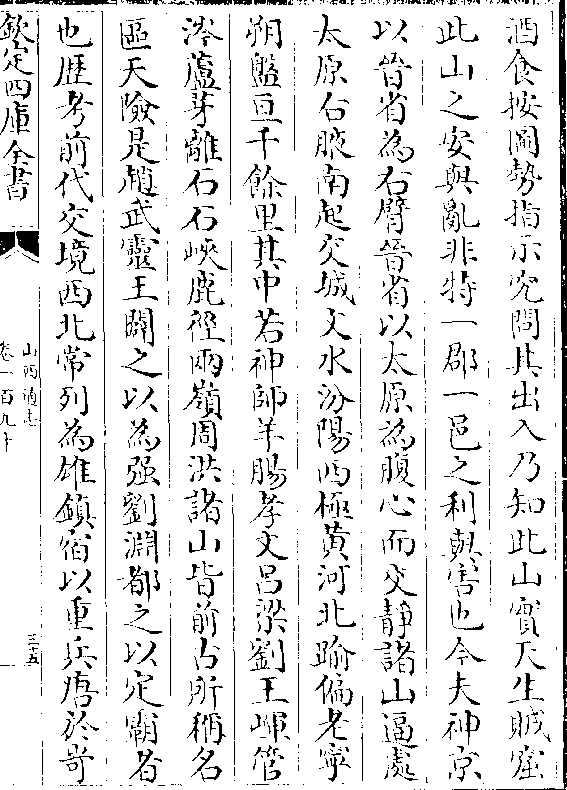 酒食按圖勢指示究問其出入乃知此山實天生賊窟
此山之安與亂非特一郡一邑之利與害也今夫神京
以晉省為右臂晉省以太原為腹心而交靜諸山逼處
太原右腋南起交城文水汾陽西極黃河北踰偏老寧
朔盤亘千餘里其中若神師羊腸孝文呂梁劉王㟦管
涔蘆芽離石石峽鹿徑兩嶺周洪諸山皆前古所稱名
區天險是趙武靈王闢之以為强劉淵都之以定霸者
也歷考前代交境西北常列為雄鎮宿以重兵唐於岢
欽定四庫全書
山西通志
卷一百九十
三十五